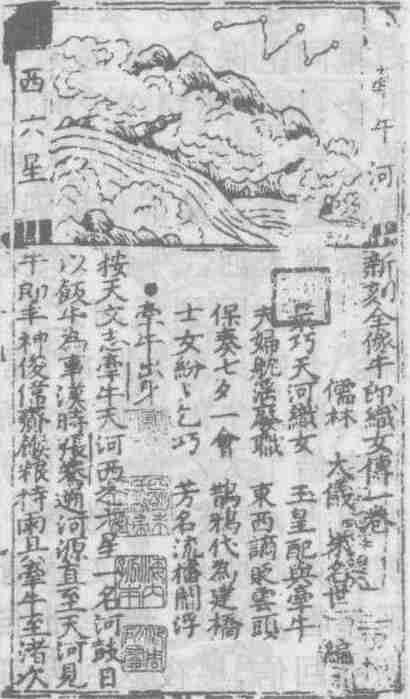 牽牛河
西六星
新刻全像牛郎織女傳一卷
儒林 太儀 朱名世 編
巧天河織女 玉皇配與牽牛
夫婦耽淫廢職 東西謫貶雲頭
保奏七夕一會 鵲鴉代為建橋
士女紛〻乞巧 芳名流播閻浮
牽牛出身
按天文志牽牛天河西 星一名河鼓日
以飯牛為事漢時張騫適河源直至天河見
牛郎 神後借齋飯粮持雨具牽牛至渚次